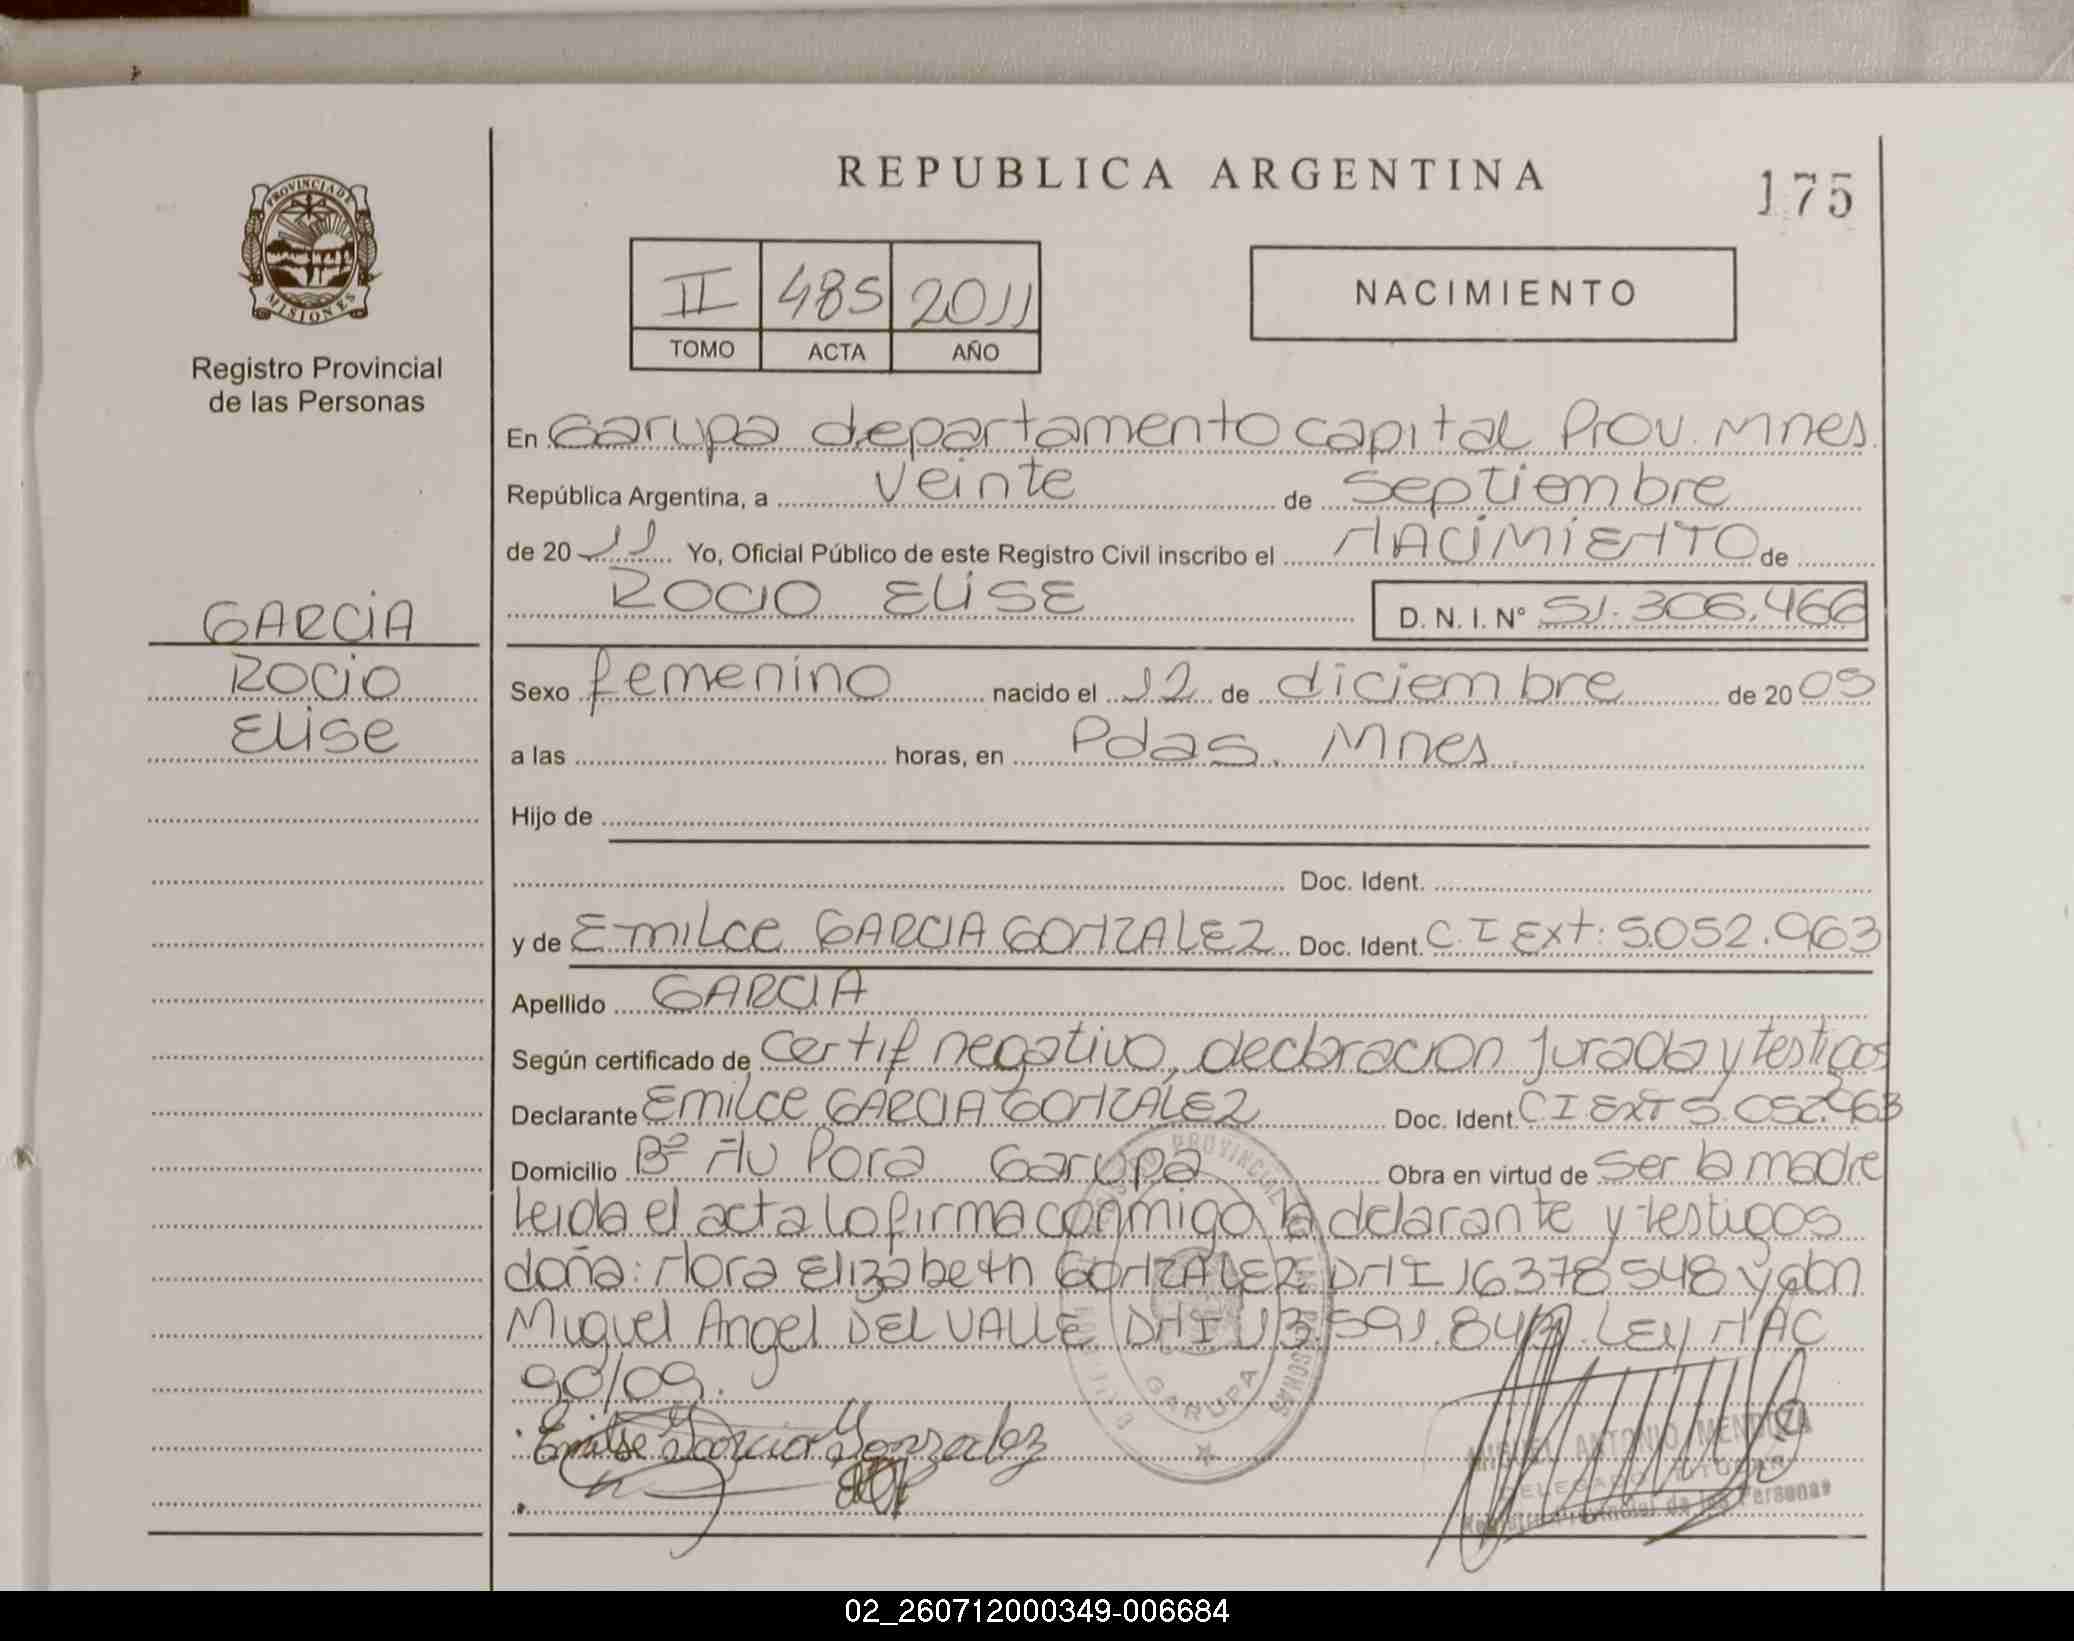 REPUBLICA ARGENTINA
175
PROVINCIA DE
MISIONES
Registro Provincial
de las Personas
II 485 2011
TOMO ACTA AÑO
NACIMIENTO
En Garupa departamento capital Prov. Mnes.
República Argentina, a veinte de septiembre
de 20 11 Yo, Oficial Público de este Registro Civil inscribo el NACIMIENTO de
ROCIO ELISE D. N. I. Nº 51.306.466
GARCIA
ROCIO
ELISE
Sexo femenino nacido el 12 de diciembre de 20 05
a las horas, en Pdas. Mnes.
Hijo de
Doc. Ident.
y de Emilce GARCIA GONZALEZ Doc. Ident. C.I Ext: 5.052.963
Apellido GARCIA
Según certificado de certif negativo, declaracion jurada y testigos
Declarante Emilce GARCIA GONZALEZ Doc. Ident. C.I EXT 5.052.963
Domicilio Bº Ñu Pora Garupa Obra en virtud de ser la madre
leida el acta lo firma conmigo la delarante y testigos
doña: Nora Elizabeth GONZALEZ DNI 16378548 y don
Miguel Angel DEL VALLE DNI 13.591.84 LEY NAC
90/09.
Emilse Garcia Gonzalez
GARUPA
MIGUEL ANTONIO MENDOZA
DELEGADO TITULAR
Registro Provincial de las Personas
02_260712000349-006684